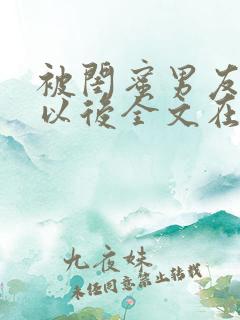 被閨蜜男友
以後全文在
九夜妹
未经同意禁止转载